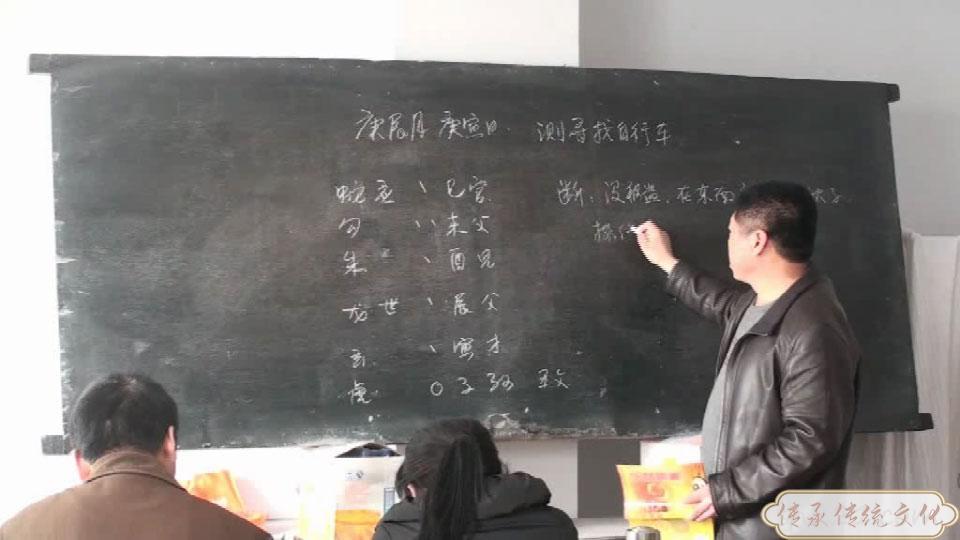 庚辰月 庚寅日. 测寻找自行车
蛇 应 、 巳官 断: 没被盗, 在东南
勾 、、 未父
朱 、 酉兄
龙 世 、 辰父
玄 、 寅才
虎 O 子孙 丑父
传承传统文化